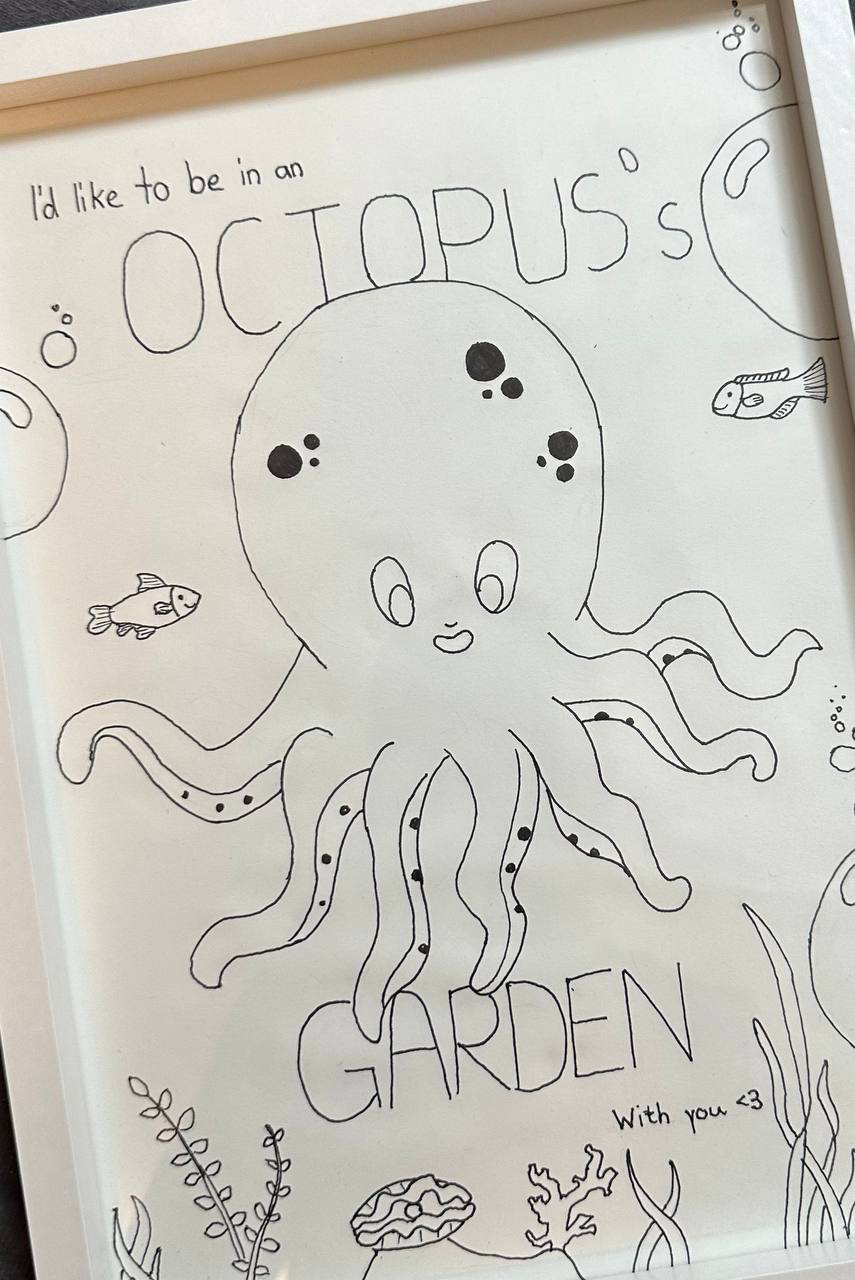 I'd like to be in an
OCTOPUS's
GARDEN
With you <3